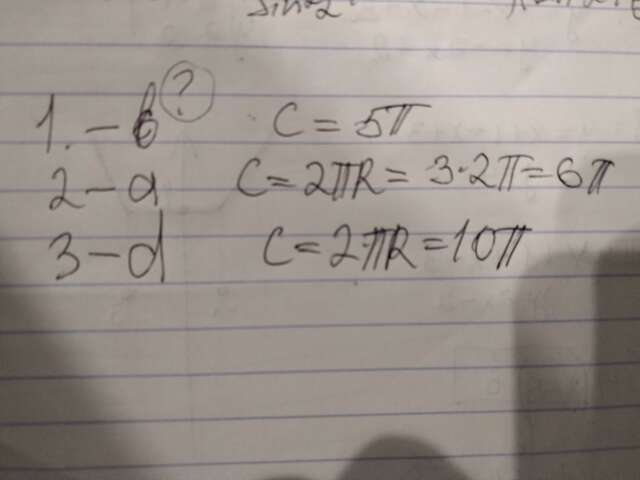 1. – b ? C = 5π
2 – a C = 2πR = 3·2π = 6π
3 – d C = 2·πR = 10π